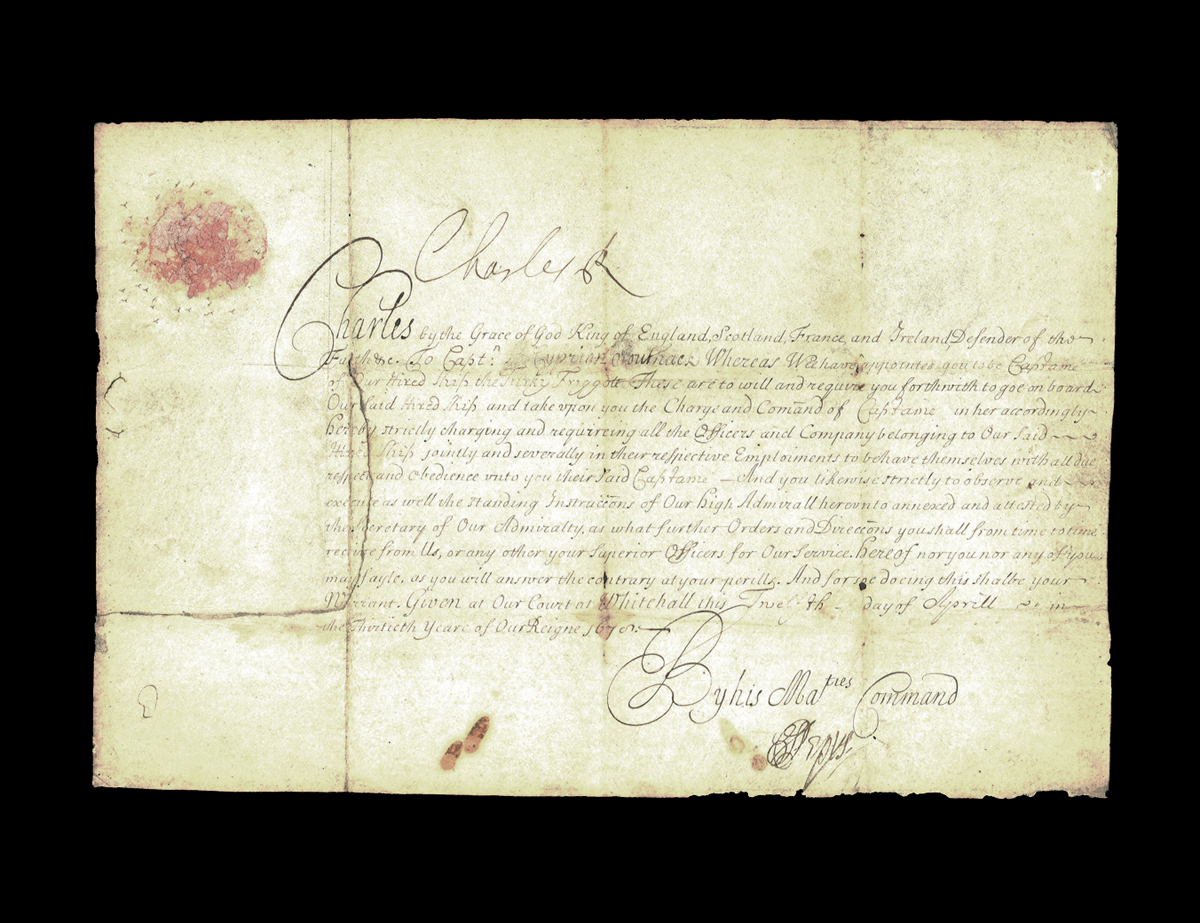 Charles R
Charles by the Grace of God King of England, Scotland, France, and Ireland, Defender of the
Faith &c. To Captn. Cyprian Southack Whereas Wee have appointed you to be Captaine
of Our Hired Ship the Turky Friggott These are to will and require you forthwith to goe on board
Our said Hired Ship and take vpon you the Charge and Comānd of Captaine in her accordingly
hereby strictly charging and requireing all the Officers and Company belonging to Our said
Hired Ship jointly and severally in their respective Emploiments to behave themselves with all due
respect and Obedience vnto you their said Captaine - And you likewise strictly to observe and
execute as well the standing Instruccōns of Our high Admirall herevnto annexed and attested by
the Secretary of Our Admiralty, as what further Orders and Direccōns you shall from time to time
receive from Us, or any other your Superior Officers for Our Service. hereof nor you nor any of you
may fayle, as you will answer the contrary at your perills. And for soe doeing this shalbe your
Warrant. Given at Our Court at Whitehall this day of Aprill in
the Thirtieth Yeare of Our Reigne 1678.
By his Maties Command
SPepys